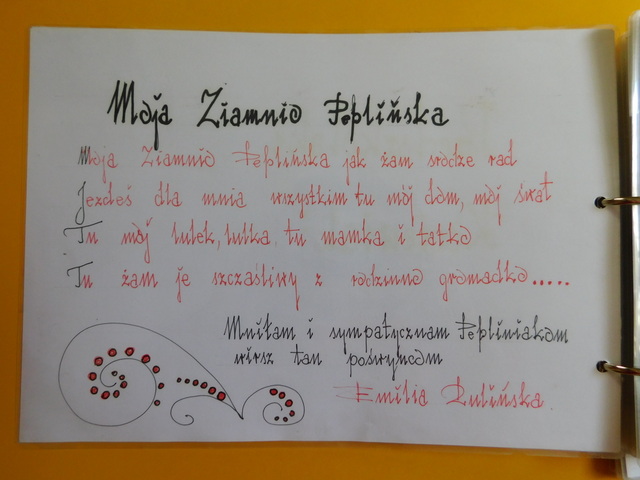 Moja Ziamnio Peplińska
Moja Ziamnio Peplińska jak żam srodze rad
Jezdeś dla mnia wszystkim tu mój dom, mój śwat
Tu mój lulek, lulka tu mamka i tatko
Tu żam je szczaśliwy z rodzinno gromadko.....
Mniłam i sympatycznam Pepliniakom
wirsz tan poświyncom
Emilia Rulińska